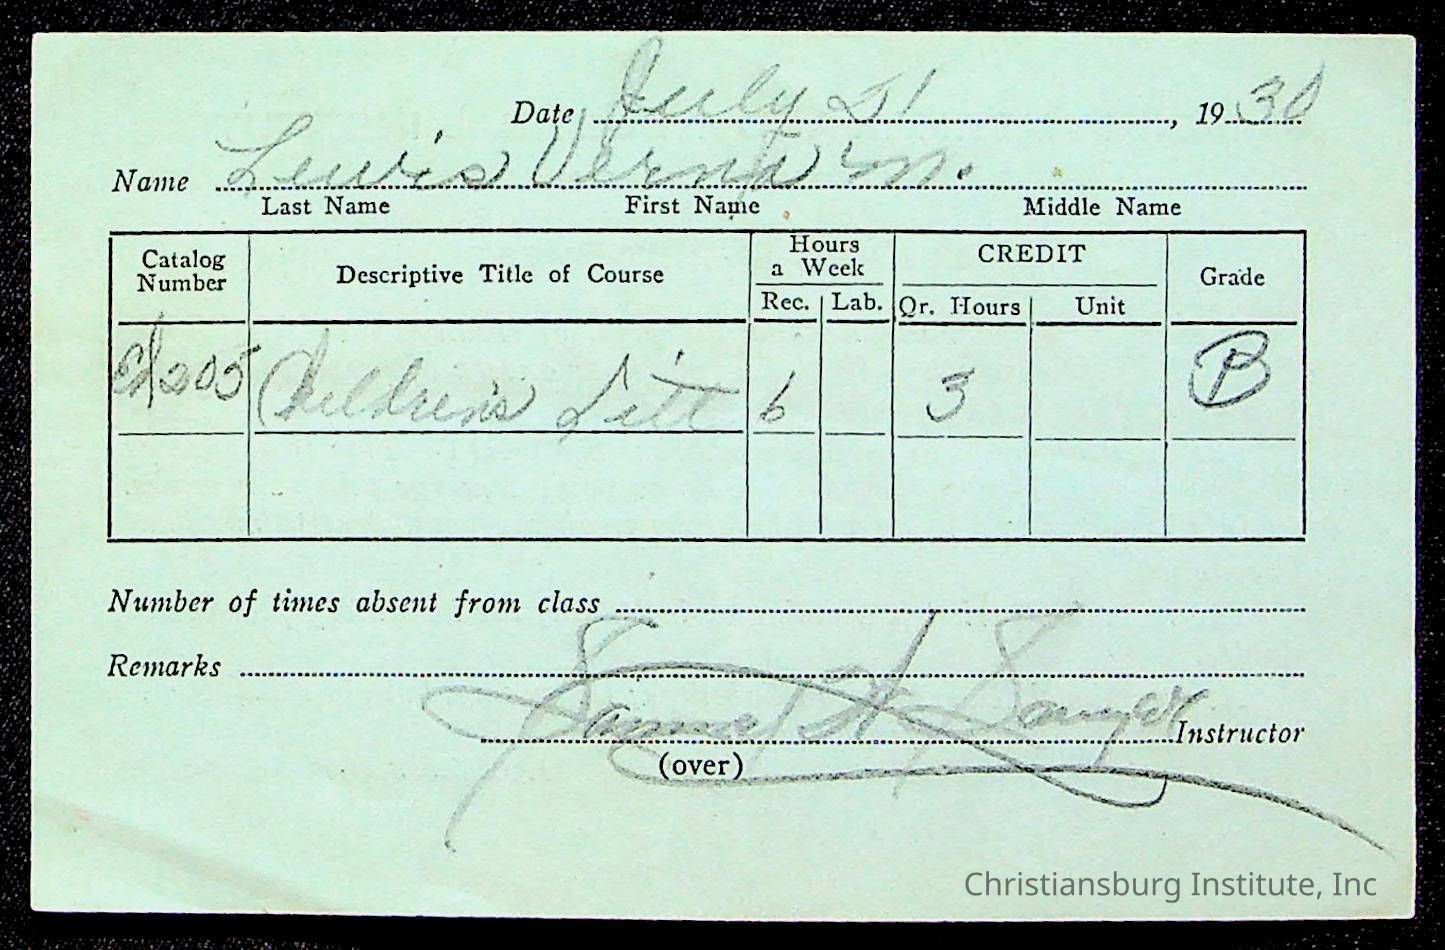 Date July 21, 1930
Name Lewis Verna M.
Last Name First Name Middle Name
Catalog Number Descriptive Title of Course Hours a Week Rec. Lab. CREDIT Qr. Hours Unit Grade
205 Children's Litt 6 3 B
Number of times absent from class
Remarks
Instructor
(over)
Christiansburg Institute, Inc